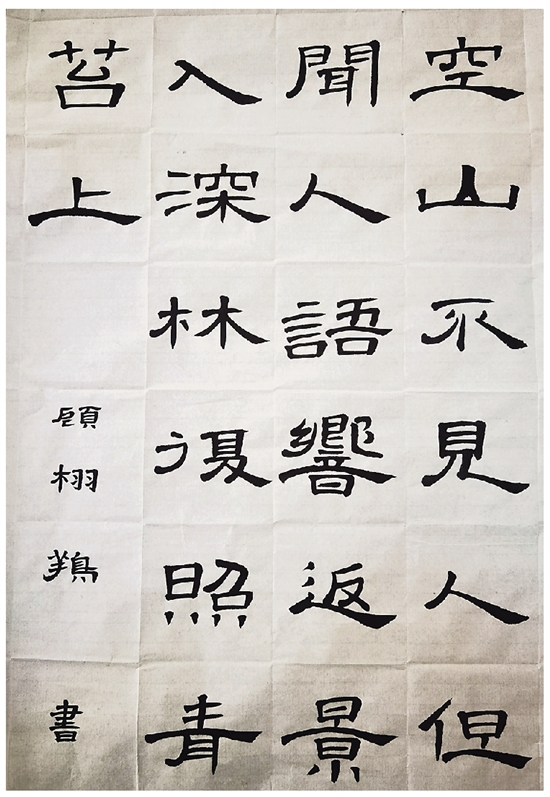 空山不見人但
聞人語響返景
入深林復照青
苔上
顧栩書